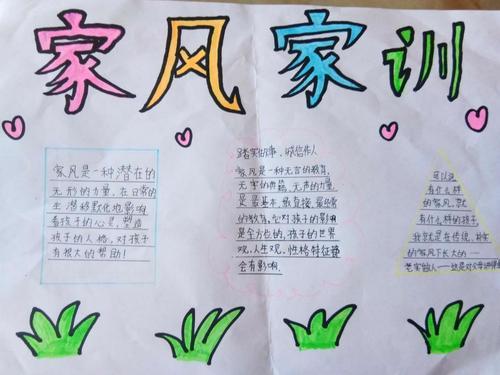 家风家训
家风是一种潜在的
无形的力量，在日常的
生活潜移默化地影响
着孩子的心灵，塑造
孩子的人格，对孩子
有很大的帮助！
踏实做事，诚信作人
家风是一种无言的教育，
无字的典籍、无声的力量，
是最基本、最直接、最经常
的教育，它对孩子的影响
是全方位的，孩子的世界
观，人生观，性格特征
会有影响，
可以说
有什么样
的家风，就
有什么样的孩子
我就是在传统、朴实
的家风下长大的一
老实做人一